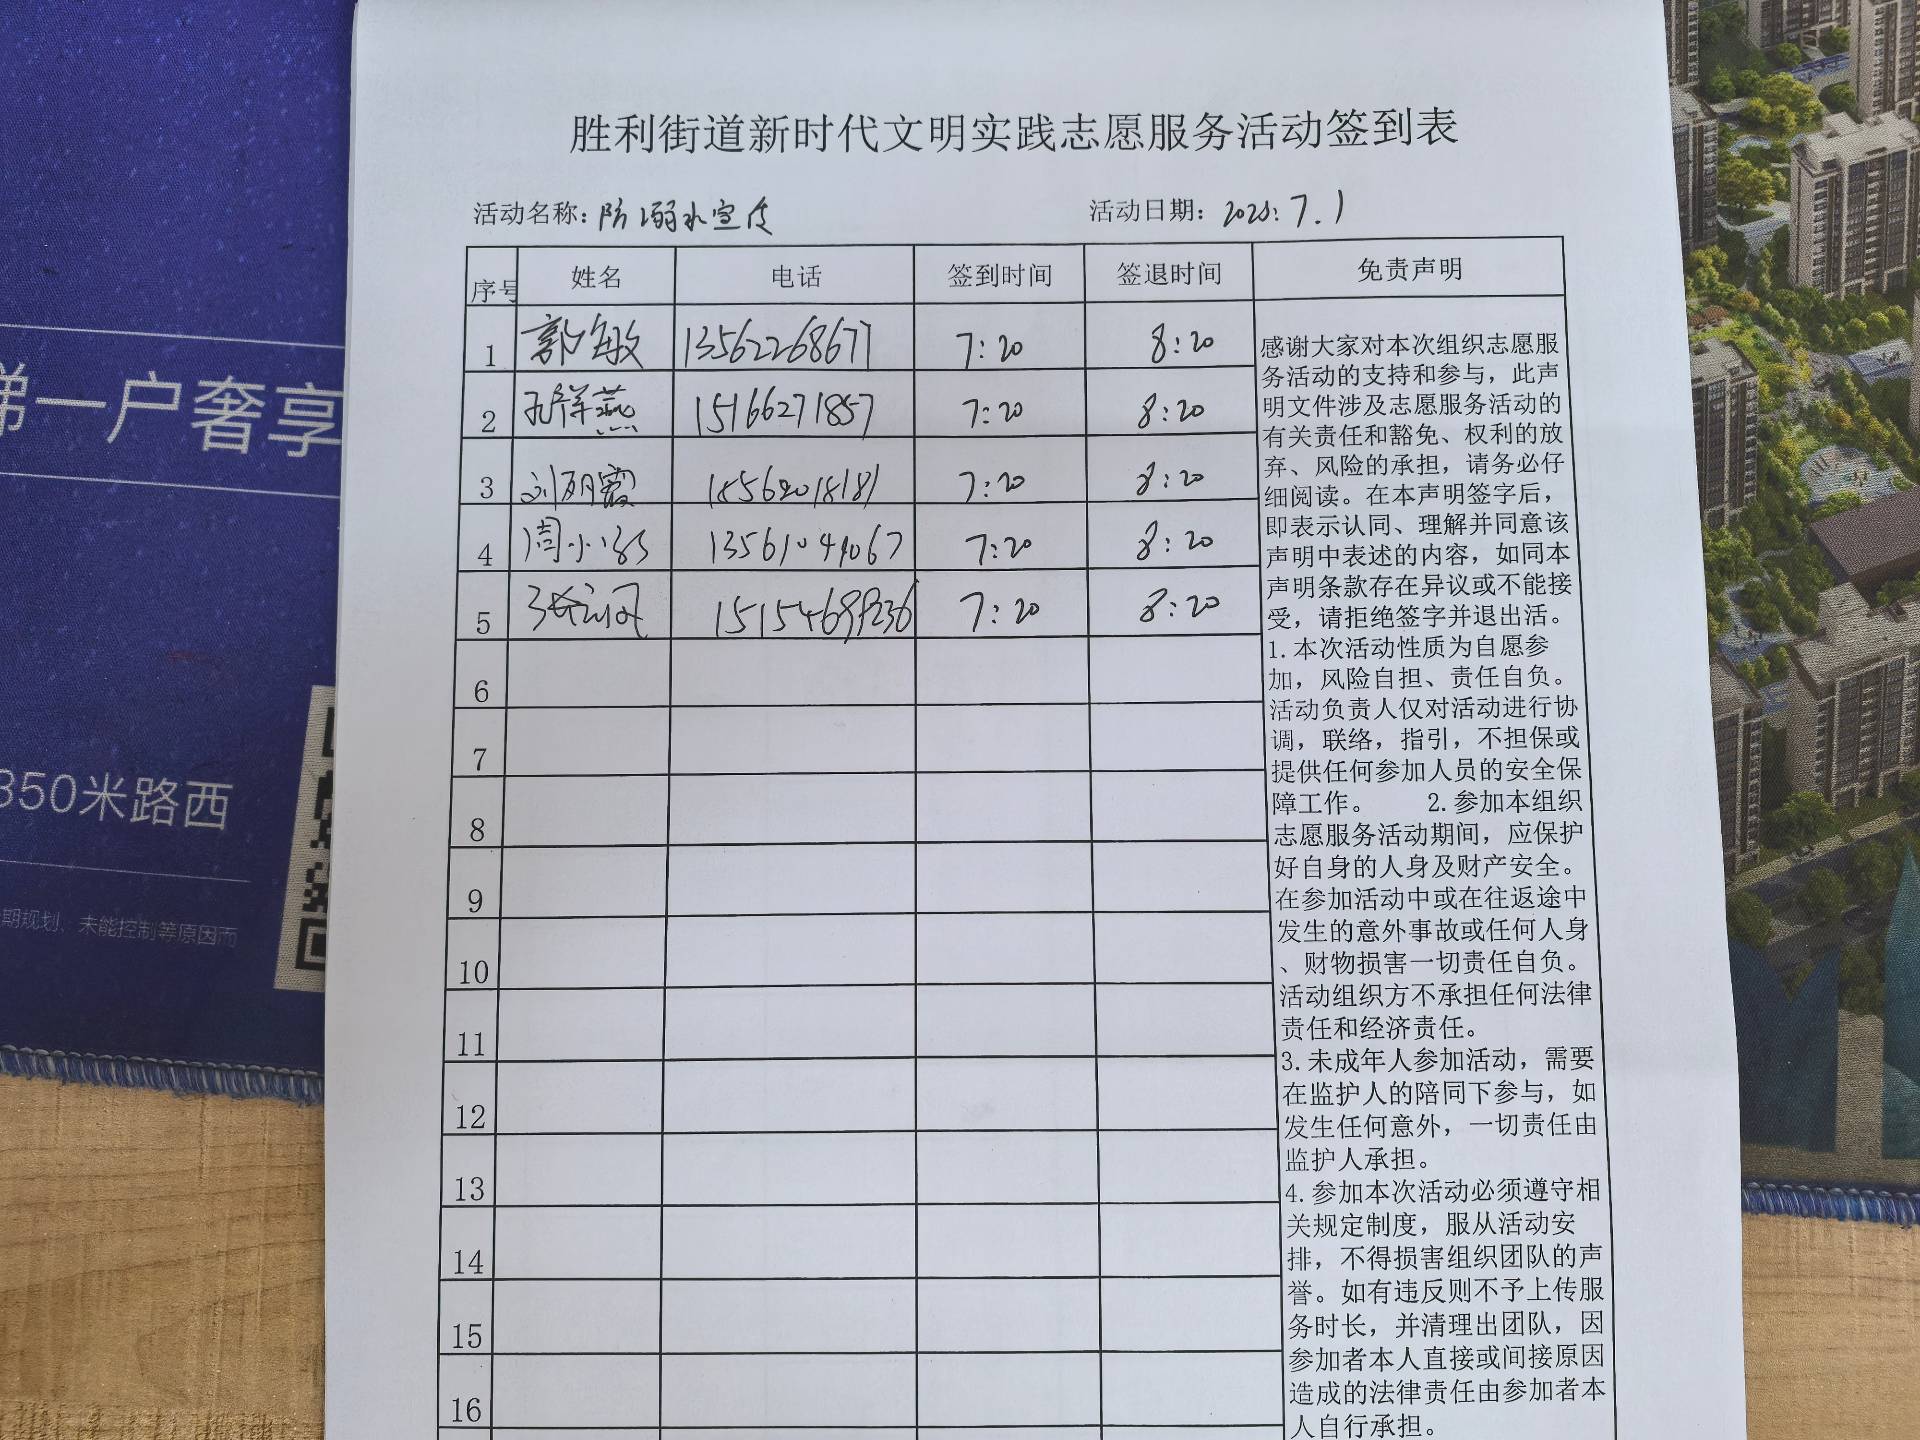 胜利街道新时代文明实践志愿服务活动签到表
活动名称：防溺水宣传
活动日期：2025.7.1
序号 姓名 电话 签到时间 签退时间 免责声明
1 郭敏 13562268677 7:20 8:20
2 孔祥燕 15166271857 7:20 8:20
3 刘丽霞 18562018181 7:20 8:20
4 周小 13561049067 7:20 8:20
5 张 7:20 8:20
6
7
8
9
10
11
12
13
14
15
16
感谢大家对本次组织志愿服
务活动的支持和参与，此声
明文件涉及志愿服务活动的
有关责任和豁免、权利的放
弃、风险的承担，请务必仔
细阅读。在本声明签字后，
即表示认同、理解并同意该
声明中表述的内容，如同本
声明条款存在异议或不能接
受，请拒绝签字并退出活。
1.本次活动性质为自愿参
加，风险自担、责任自负。
活动负责人仅对活动进行协
调，联络，指引，不担保或
提供任何参加人员的安全保
障工作。 2.参加本组织
志愿服务活动期间，应保护
好自身的人身及财产安全。
在参加活动中或在往返途中
发生的意外事故或任何人身
、财物损害一切责任自负。
活动组织方不承担任何法律
责任和经济责任。
3.未成年人参加活动，需要
在监护人的陪同下参与，如
发生任何意外，一切责任由
监护人承担。
4.参加本次活动必须遵守相
关规定制度，服从活动安
排，不得损害组织团队的声
誉。如有违反则不予上传服
务时长，并清理出团队，因
参加者本人直接或间接原因
造成的法律责任由参加者本
人自行承担。
梯一户奢享
350米路西
期规划、未能控制等原因而